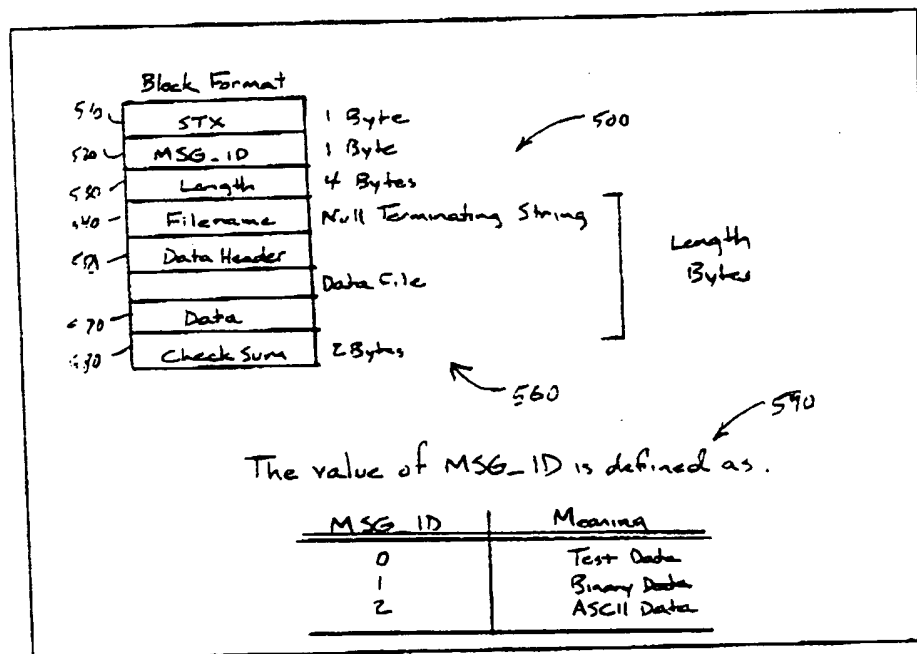 Block Format
510 STX 1 Byte
500
520 MSG_ID 1 Byte
530 Length 4 Bytes
540 Filename Null Terminating String
Data Header
Length
Bytes
Data File
570 Data
580 Check Sum 2 Bytes
560
590
The value of MSG_ID is defined as.
MSG_ID Meaning
0 Test Data
1 Binary Data
2 ASCII Data